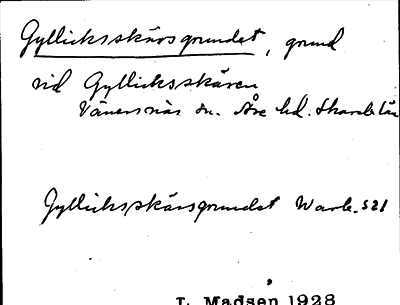 Gyllicksskärsgrundet, grund
vid Gyllicksskären
Vänersnäs sn. Åse hd. Skarab. län
Gyllicksskärsgrundet Wark. 521
I. Madsen 1928